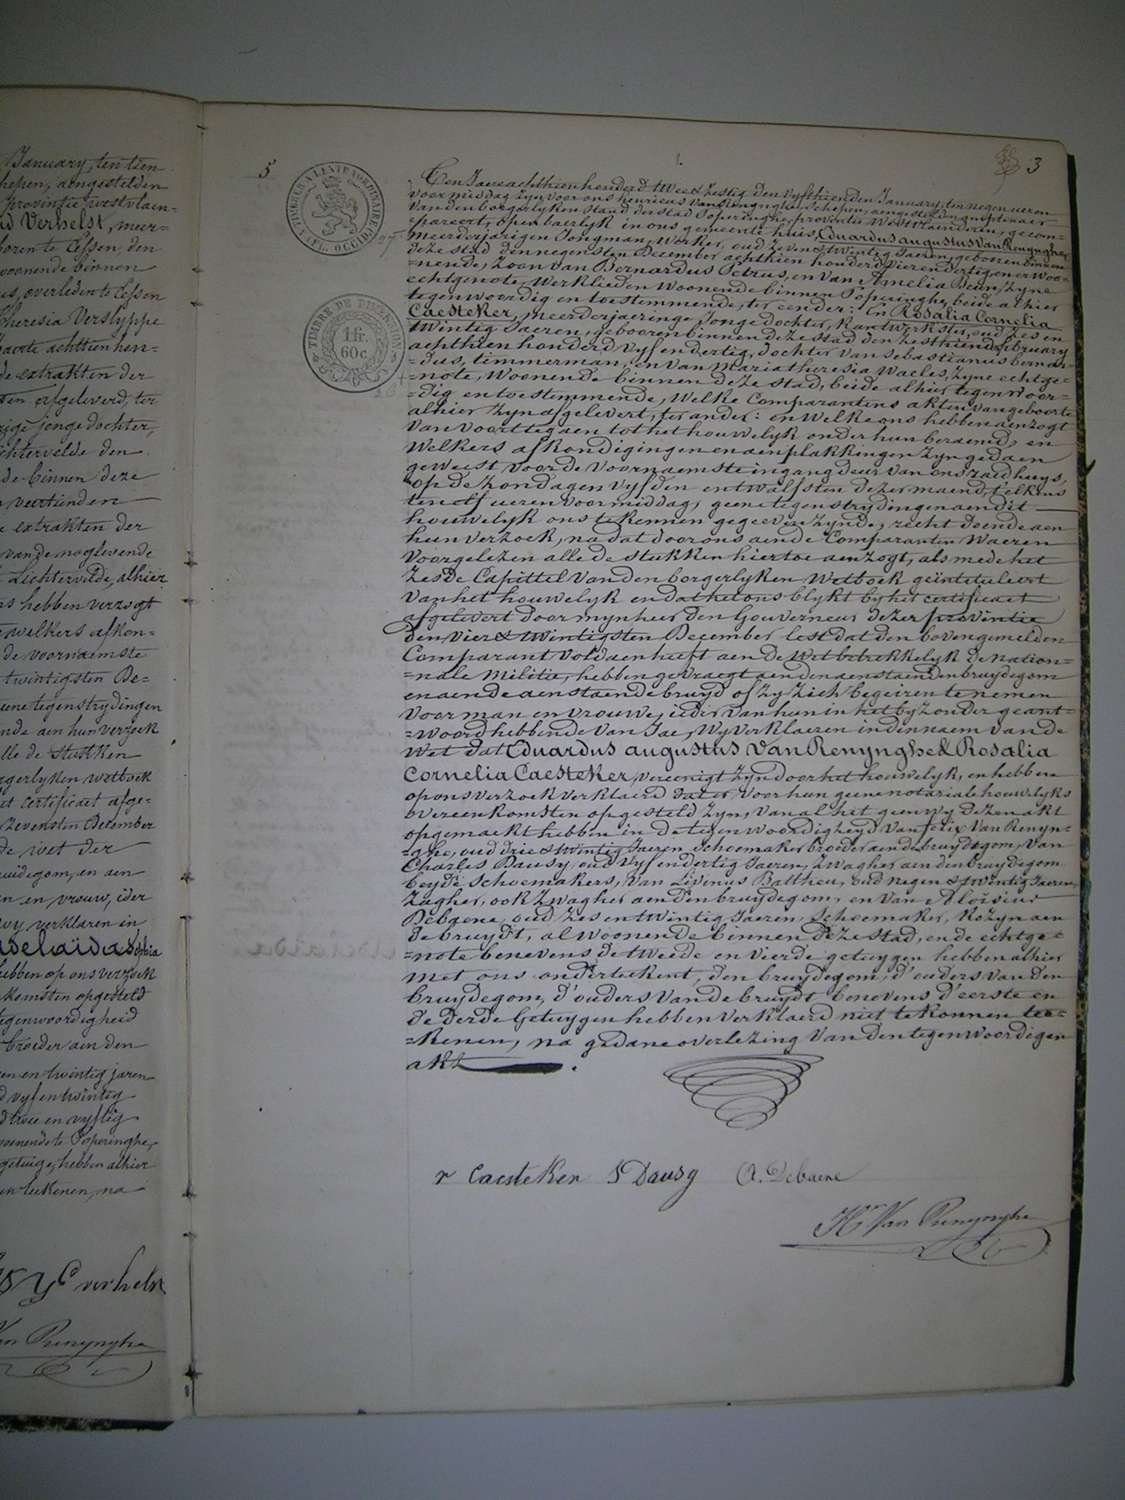 January, ten tien
schepen, aengestelden
provintie westvlaen-
Verhelst, meer-
boren te Lessen, den
woonende binnen
us, overleden te Lessen
Theresia Verslyppe
achttienhon-
de extrakten der
ten afgeleverd, ter
rige jonge dochter,
chtervelde den
de binnen deze
veertienden
extrakten der
van de mogelvende
Lichtervelde, alhier
ns hebben verzogt
welkers afkon-
de voornaemste
twintigsten De-
eene tegenstrydingen
nde aen hun verzoek
alle de stukken
ggerlyken wetboek
at certificaet afge-
zevensten December
de wet der
uidegom, en aen
en en vrouw, ider
wy verklaren in
adelaïda Sophia
hebben op ons verzoek
komsten opgesteld
tegenwoordigheid
broeder aen den
en en twintig jaren
d vyf en twintig
d twee en vyftig
woonende te Poperinghe,
getuige, hebben alhier
en teekenen, na
Yc verhelst
Van Renynghe
5
3
TIMBRE DE DIMENSION
1 fr.
60 c.
Een Jaere achthien honderd twee & zestig den vyfthienden January, ten negen ueren
voormiddag zyn voor ons henricus Van Renynghe, schepen, aengestelden officier
van den borgerlyken stand der stad Poperinghe, provintie Westvlaenderen, gecom-
pareert, openbaerlyk in ons gemeente huis, Eduardus augustus Van Renynghe
meerderjarigen Jongman, Werker, oud zeven & twintig Jaeren, geboren binnen
deze stad den negensten December achthien honderd vier en dertig en er woo-
-nende, zoon van Bernardus Petrus, en van Amelia Benn, zyne
echtgenote, Werklieden Woonende binnen Poperinghe, beide alhier
tegenwoordig en toestemmende, ter eender: En Rosalia Cornelia
Caesteker, meerderjaeringe Jonge dochter, Kantwerkster, oud zes en
twintig Jaeren, geboren binnen deze stad den zesthienden february
achthien honderd vyf en dertig, dochter van Sebastianus bernar-
-dus, timmerman, en van Maria theresia Waeles, zyne echtge-
-note, woonende binnen deze stad, beide alhier tegenwoor-
-dig en toestemmende, Welke Comparanten akten van geboorte
alhier zyn afgelevert, ter ander: en Welke ons hebben aenzogt
van voort te gaen tot het houwelyk onder hun beraemd, en
Welkers afkondigingen en aenplakkingen zyn gedaen
geweest voor de voornaemste ingang deur van ons raedhuys,
op de zondagen vyfden en twalfsten dezer maend, telkens
ten elf ueren voormiddag; geene tegenstrydingen aen dit
houwelyk ons te kennen gegeeven zynde, recht doende aen
hun verzoek, na dat door ons aen de Comparanten Waeren
voorgelezen alle de stukken hiertoe aenzogt, als mede het
zesde Capittel van den borgerlyken Wetboek geïntituleert
van het houwelyk en dat het ons blykt by het certificaet
afgelevert door mynheer den Gouverneur dezer provintie
den vier & twintigsten December lest dat den bovengemelden
Comparant voldaen heeft aen de Wet betrekkelyk de Nation-
-nale Militie, hebben gevraegt aen den aenstaenden bruydegom
en aen de aenstaende bruyd of zy zich begeiren te nemen
voor man en vrouwe, ieder van hun in het byzonder geant-
-Woord hebbende van Jae, Wy verklaeren in den naem van de
Wet dat Eduardus augustus Van Renynghe & Rosalia
Cornelia Caesteker, vereenigt zyn door het houwelyk, en hebben
op ons verzoek verklaerd dat er voor hun geene notariale houwelyks
overeenkomsten opgesteld zyn, van al het geen wy dezen akt
opgemaekt hebben in de tegenwoordigheyd van felix Van Renyn-
-ghe, oud drie & twintig Jaeren, schoemaker, broeder aen de bruydegom, van
Charles Dausy oud vyf en dertig Jaeren, zwagher aen den bruydegom
beyde schoemakers, van Livinus Baltheu, oud negen & twintig Jaeren,
zagher, ook zwagher aen den bruydegom, en van Aloïsius
Debaene, oud zes en twintig Jaeren, schoemaker, kozyn aen
de bruydt, al woonende binnen deze stad, en de echtge-
-note benevens de tweede en vierde getuygen hebben alhier
met ons onderteekent, den bruydegom, d'ouders van den
bruydegom, d'ouders van de bruydt benevens d'eerste en
de derde Getuygen hebben verklaerd niet te konnen tee-
-kenen, na gedane overlezing van den tegenwoordigen
akt.
r Caesteker S Dausy A. Debaene
Hri Van Renynghe